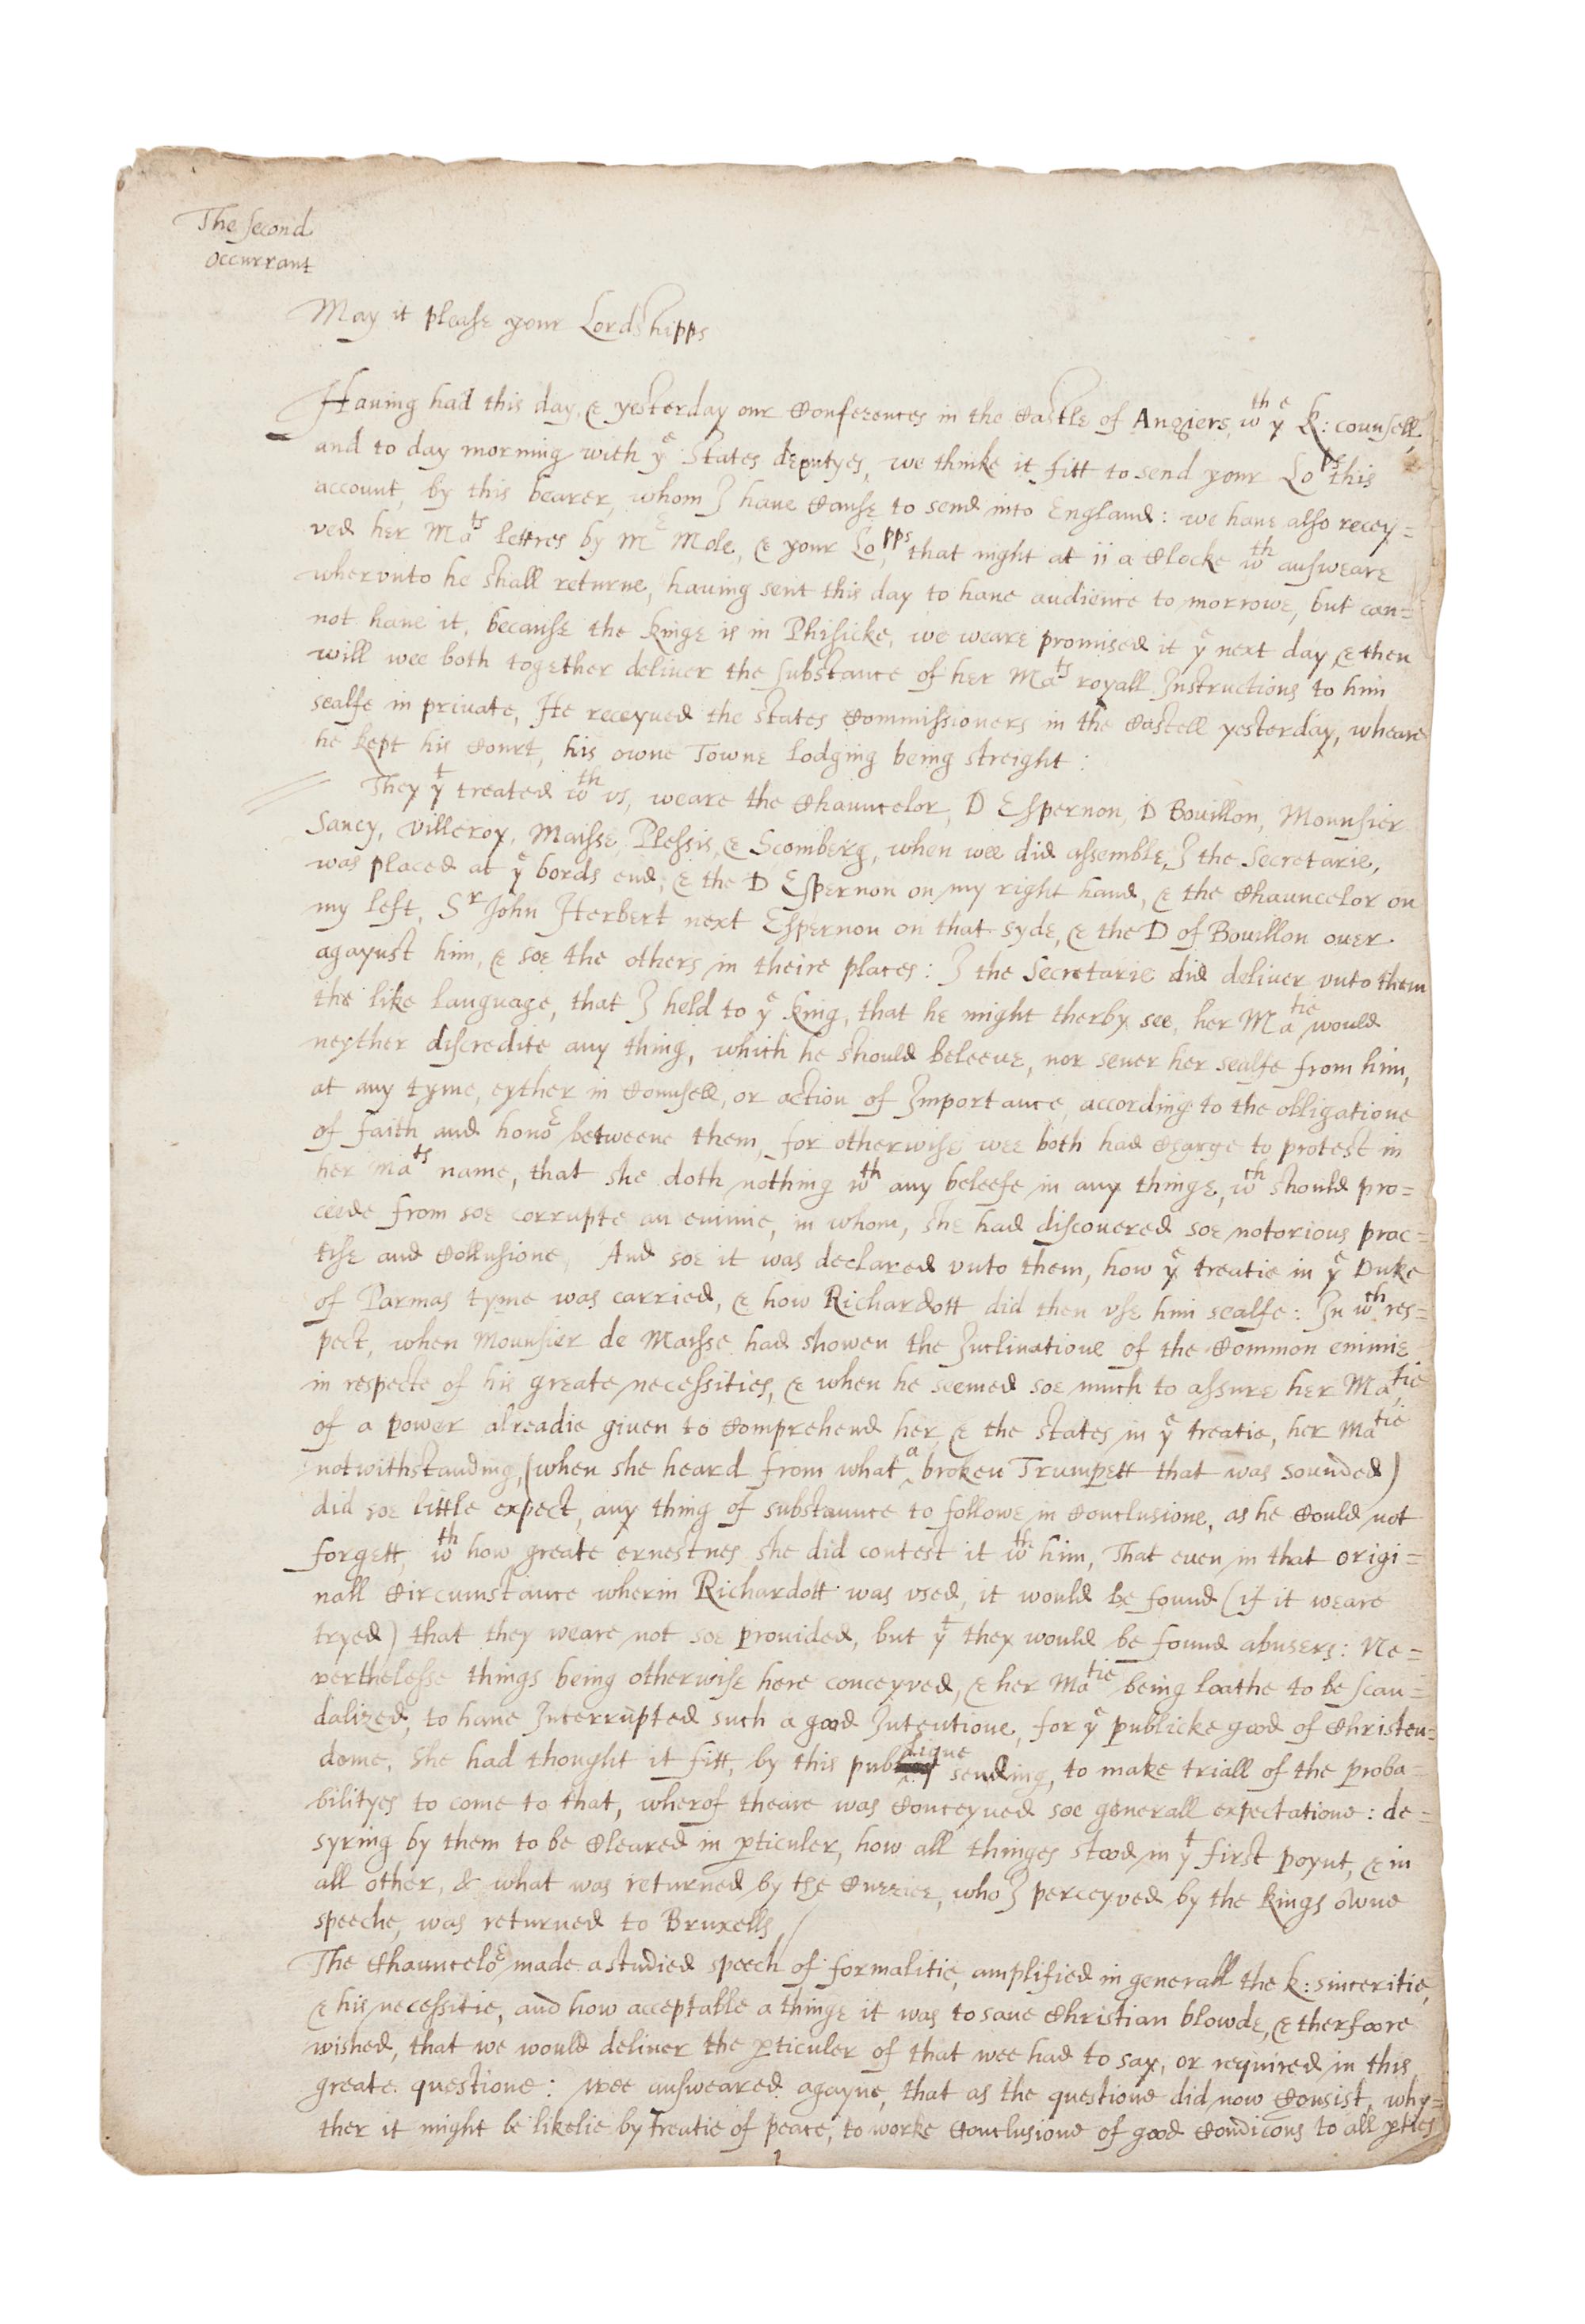 The second
Occurrant
May it please your Lordshipps
Having had this day, & yesterday our Conferences in the Castle of Angiers, wth ye K: counsell,
and to day morning with ye States deputyes, we thinke it fitt to send your Lops this
account, by this bearer, whom I have Cause to send into England: we have also recey=
ved her Mats lettres by Mr Mole, & your Lopps, that night at ii a Clocke wth answeare
whervnto he shall returne, having sent this day to have audience to morrowe, but can=
not have it, because the kinge is in Phisicke, we weare promised it ye next day, & then
will wee both together deliver the substance of her Mats royall Instructions to him
sealfe in private, He receyved the states Commissioners in the Castell yesterday, wheare
he kept his Court, his owne Towne lodging being streight:
They yt treated wth vs, weare the Chauncelor, D Espernon, D Bouillon, Mounsier
Sancy, Villeroy, Maisse, Plessis, & Scomberg, when wee did assemble, I the Secretarie,
was placed at ye bords end, & the D Espernon on my right hand, & the Chauncelor on
my left, Sr John Herbert next Espernon on that syde, & the D of Bouillon over
agaynst him, & soe the others in theire places: I the Secretarie did deliver vnto them
the like language, that I held to ye king, that he might therby see, her Matie would
neyther discredite any thing, which he should beleeve, nor sever her sealfe from him,
at any tyme, eyther in Counsell, or action of Importance, according to the obligatione
of faith and honor betweene them, for otherwise wee both had Charge to protest in
her Mats name, that she doth nothing wth any beleefe in any thinge, wch should pro=
ceede from soe corrupte an enimie, in whom, she had discovered soe notorious prac=
tise and Collusione, And soe it was declared vnto them, how ye treatie in ye Duke
of Parmas tyme was carried, & how Richardott did then vse him sealfe: In wch res=
pect, when Mounsier de Maisse had showen the Inclinatione of the Common enimie
in respecte of his greate necessities, & when he seemed soe much to assure her Matie,
of a power alreadie given to Comprehend her, & the states in ye treatie, her Matie
notwithstanding, (when she heard from what a broken Trumpett that was sounded)
did soe little expect, any thing of substaunce to followe in Conclusione, as he Could not
forgett, wth how greate ernestnes she did contest it wth him, That even in that origi=
nall Circumstance wherin Richardott was vsed, it would be found (if it weare
tryed) that they weare not soe provided, but yt they would be found abusers: Ne=
verthelesse things being otherwise here conceyved, & her Matie being loathe to be scan=
dalized, to have Interrupted such a good Intentione, for ye publicke good of Christen=
dome, she had thought it fitt, by this publique sending, to make triall of the proba=
bilityes to come to that, wherof theare was Conceyved soe generall expectatione: de=
syring by them to be Cleared in pticuler, how all thinges stood in yt first poynt, & in
all other, & what was returned by the Currier, who I perceyved by the kings owne
speeche, was returned to Bruxells /
The Chauncelor made a studied speech of formalitie, amplified in generall the k: sinceritie,
& his necessitie, and how acceptable a thinge it was to save Christian blowde, & therfoore
wished, that we would deliver the pticuler of that wee had to say, or required in this
greate questione: wee answeared agayne, that as the questione did now Consist, why=
ther it might be likelie by treatie of peace, to worke Conclusione of good Condicons to all pties
1